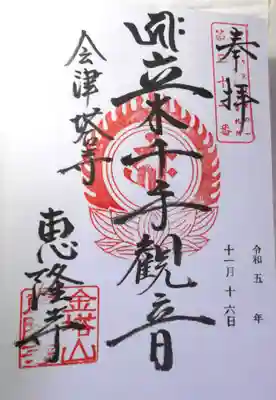 奉拝
立木千手觀音
会津塔寺
恵隆寺
令和五年
十一月十六日
金塔山